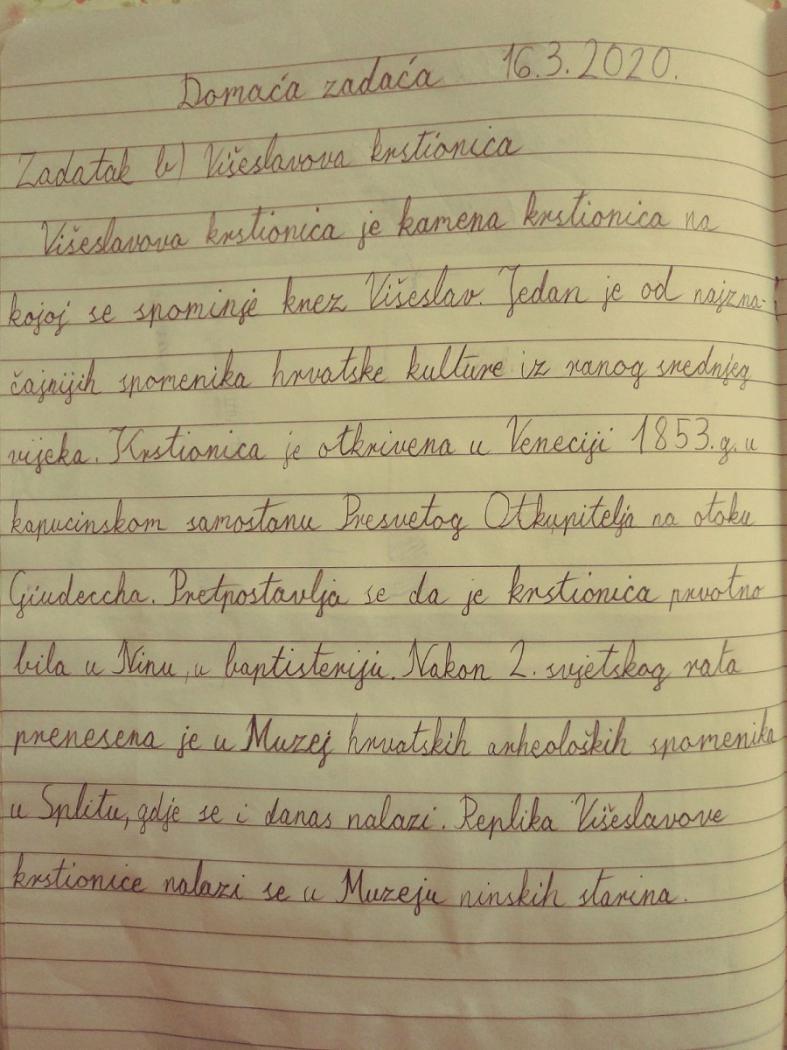 Domaća zadaća 16.3.2020.
Zadatak b) Višeslavova krstionica
Višeslavova krstionica je kamena krstionica na
kojoj se spominje knez Višeslav. Jedan je od najzna-
čajnijih spomenika hrvatske kulture iz ranog srednjeg
vijeka. Krstionica je otkrivena u Veneciji 1853.g. u
kapucinskom samostanu Presvetog Otkupitelja na otoku
Giudeccha. Pretpostavlja se da je krstionica prvotno
bila u Ninu, u baptisteriju. Nakon 2. svjetskog rata
prenesena je u Muzej hrvatskih arheoloških spomenika
u Splitu, gdje se i danas nalazi. Replika Višeslavove
krstionice nalazi se u Muzeju ninskih starina.